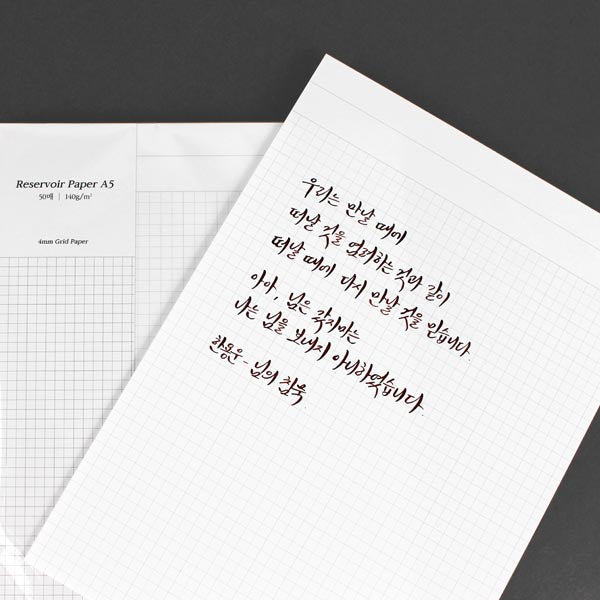 Reservoir Paper A5
50매 | 140g/m²
4mm Grid Paper
우리는 만날 때에
떠날 것을 염려하는 것과 같이
떠날 때에 다시 만날 것을 믿습니다.
아아, 님은 갔지마는
나는 님을 보내지 아니하였습니다.
한용운 - 님의 침묵